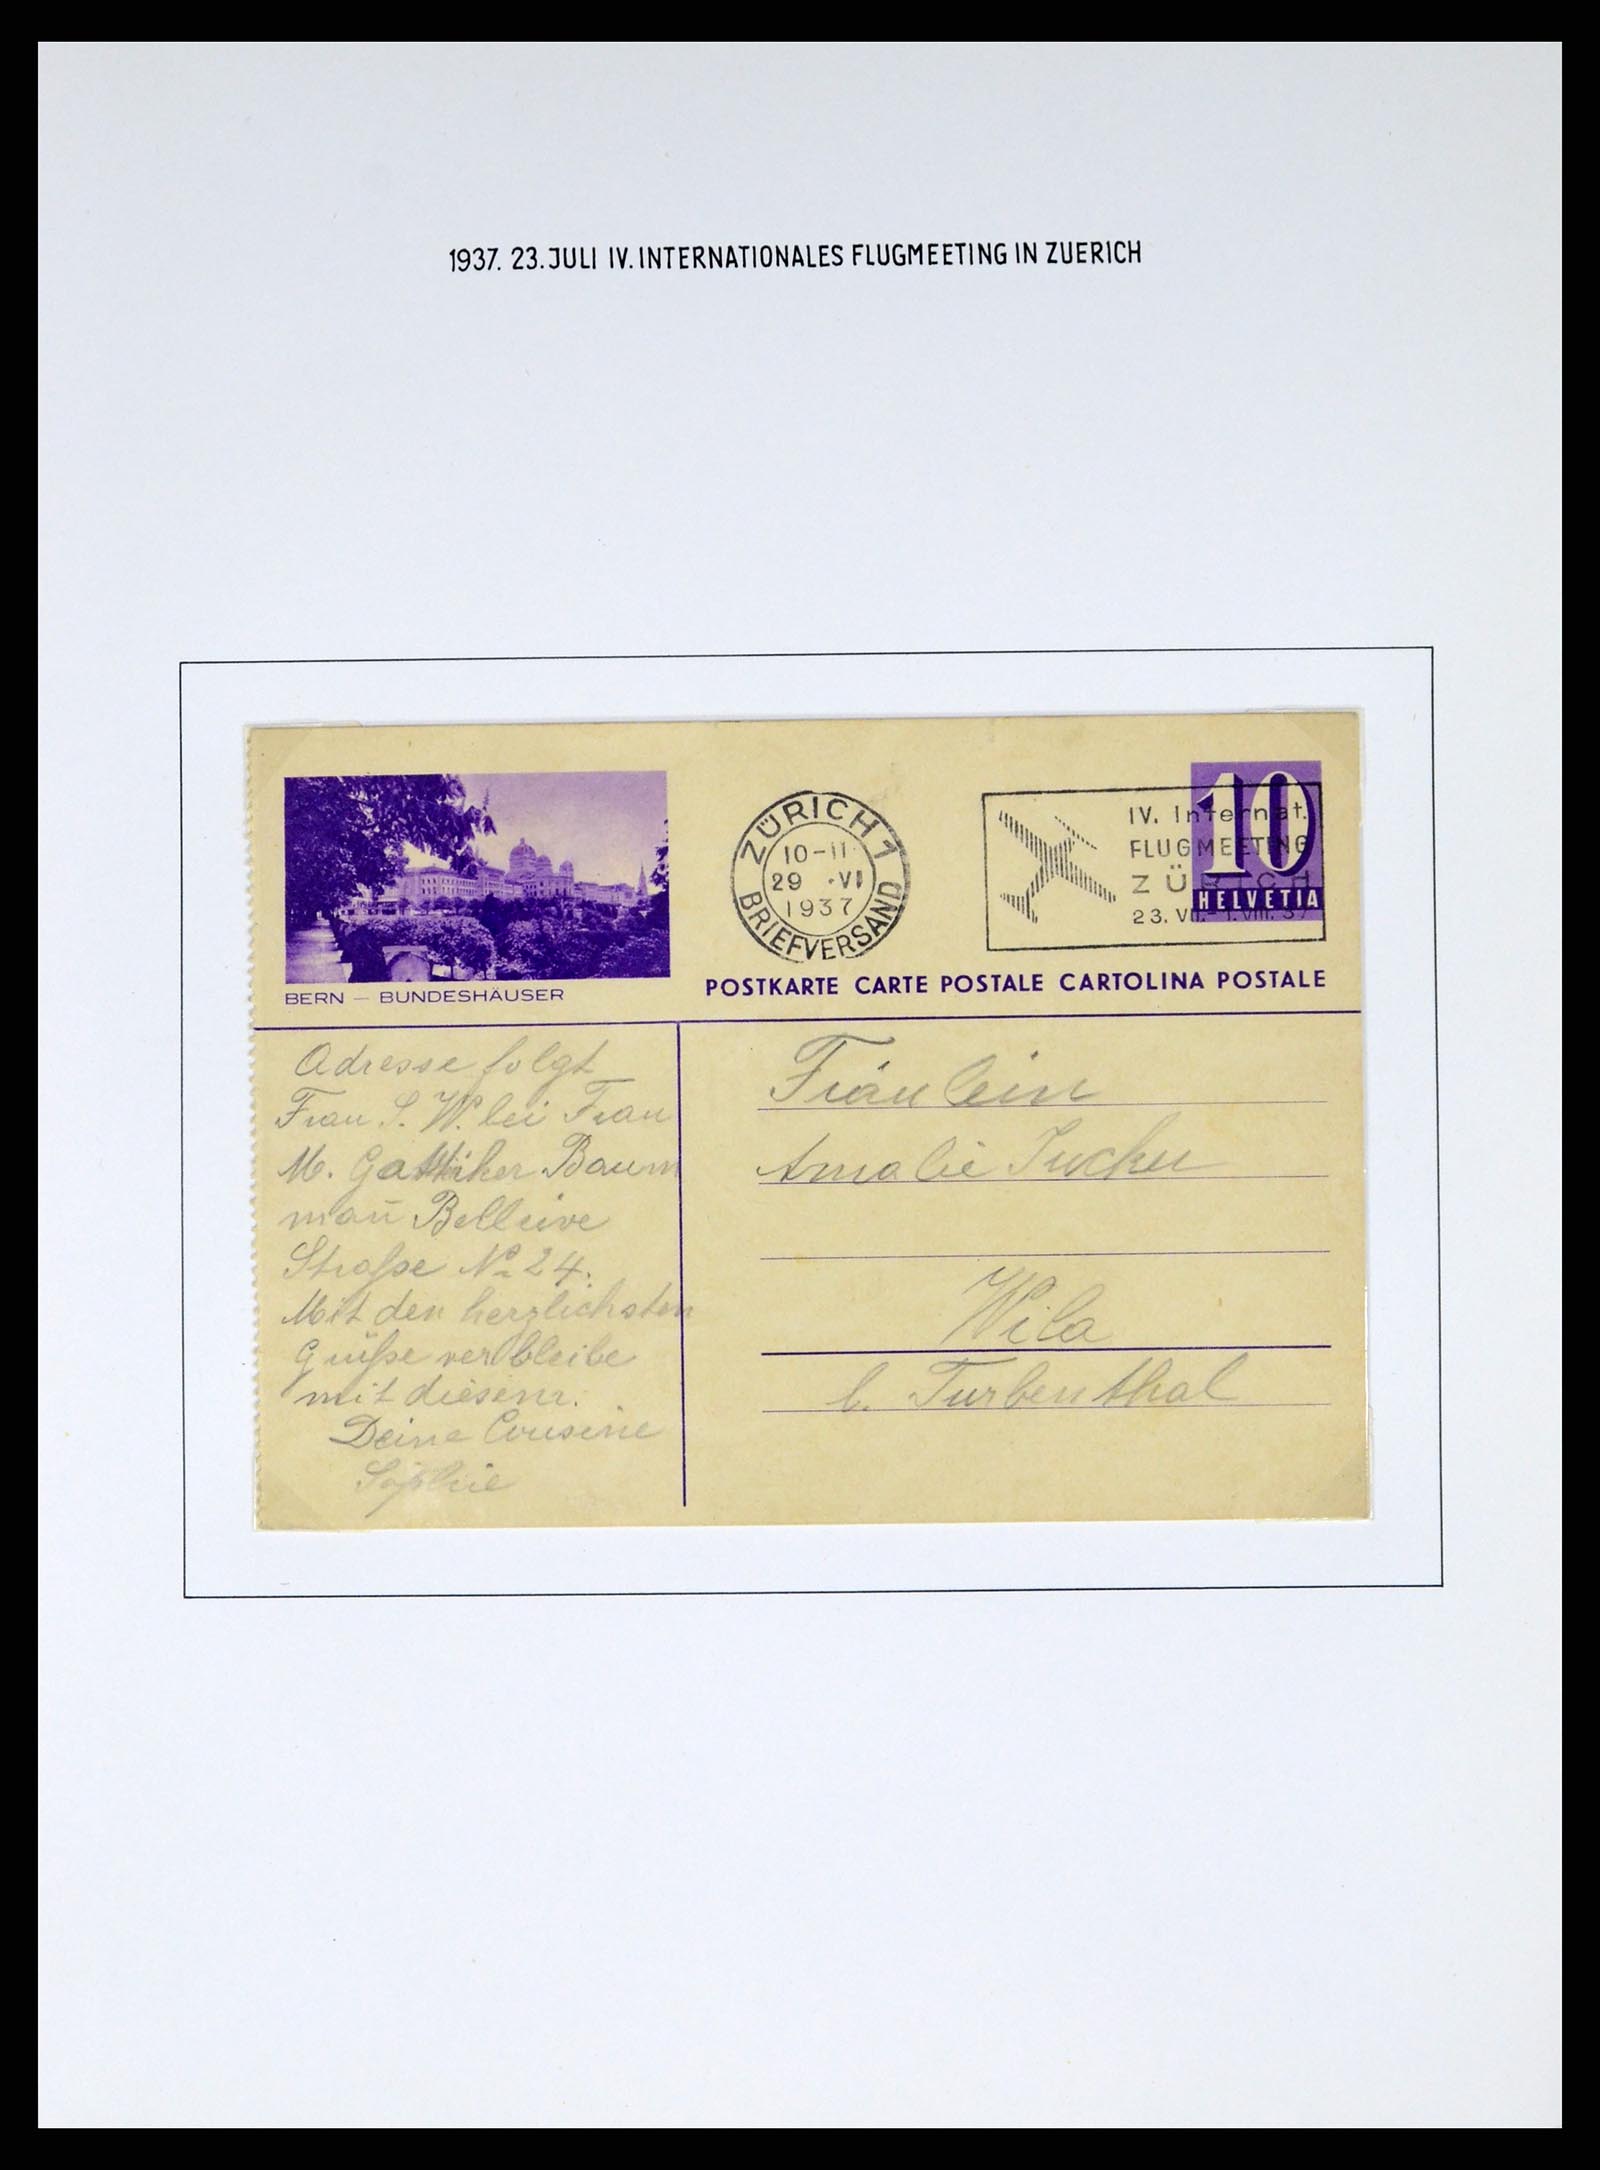 1937. 23. JULI IV. INTERNATIONALES FLUGMEETING IN ZUERICH
ZÜRICH 1
10-11
29 ·VI
1937
BRIEFVERSAND
IV. Internat.
FLUGMEETING
ZÜRICH
23. VII.- 1. VIII. 37
10
HELVETIA
BERN – BUNDESHÄUSER
POSTKARTE CARTE POSTALE CARTOLINA POSTALE
Adresse folgt
Frau S. W. bei Frau
M. Gattiker Baum
mañ Bellerive
Straße No 24.
Mit den herzlichsten
Grüße verbleibe
mit diesem.
Deine Cousine
Sophie
Fräulein
Amalie
Wila
b. Turbenthal